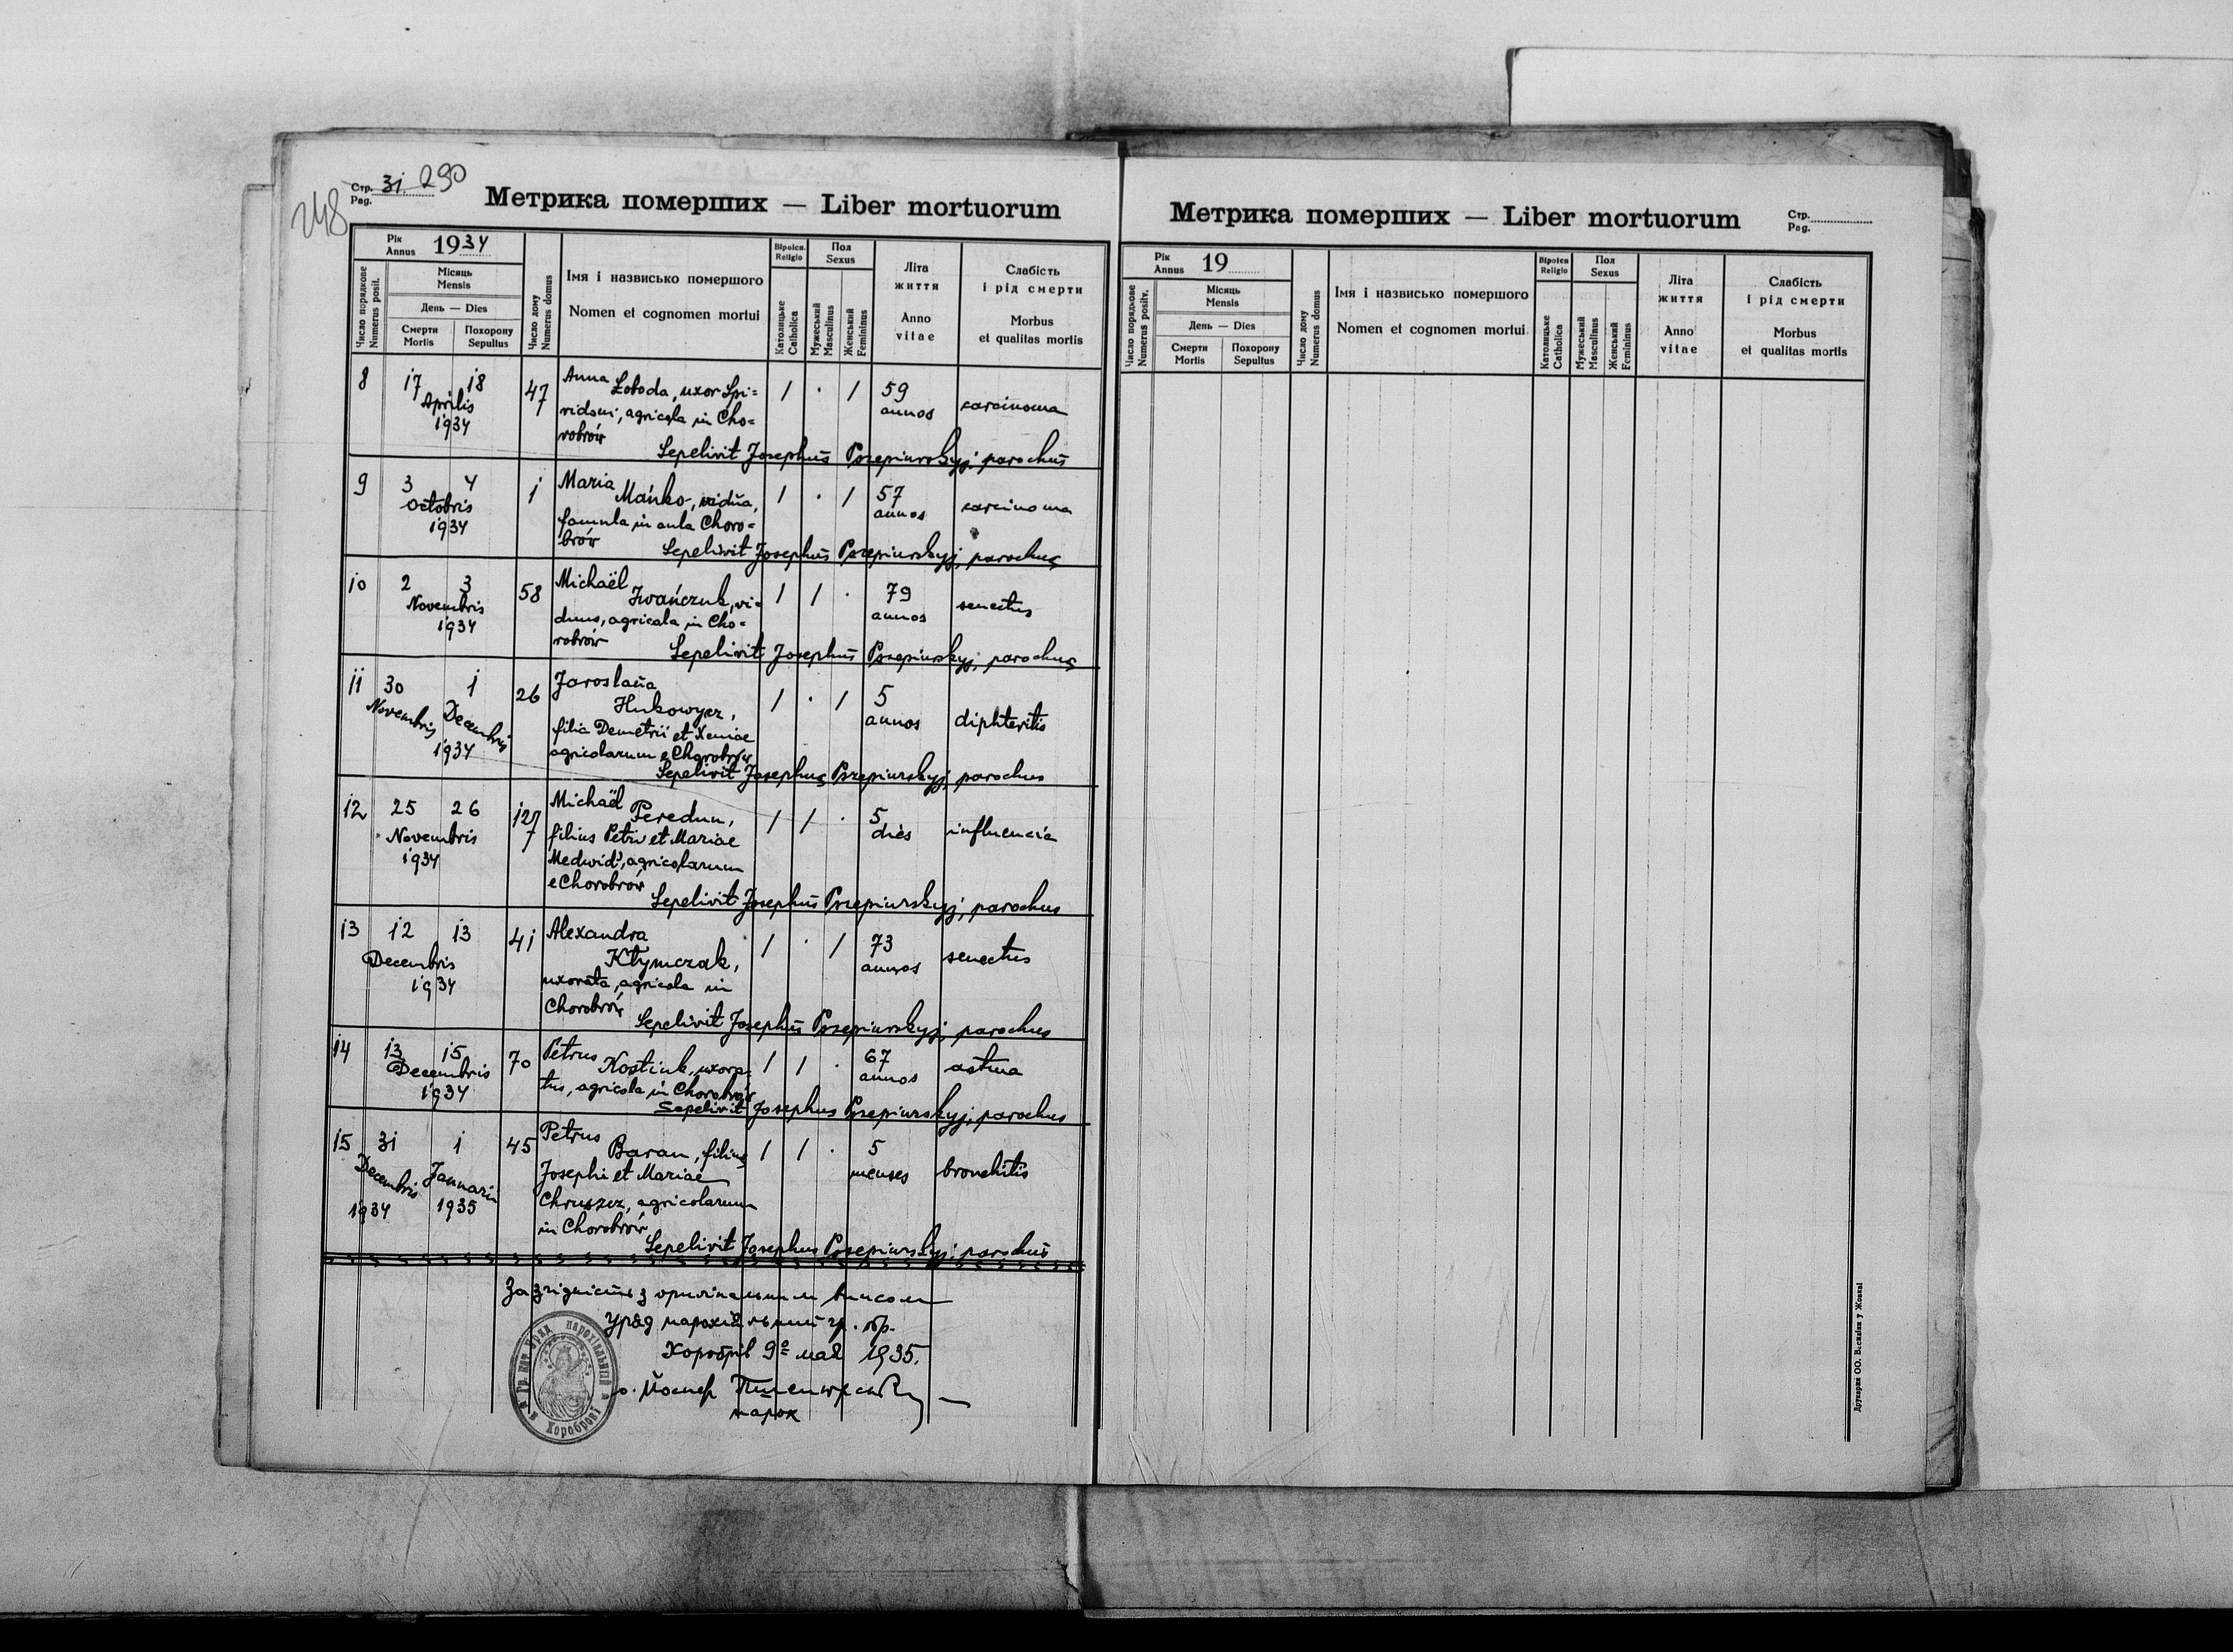 248
Стр. 31. 290
Pag.
Метрика померших — Liber mortuorum
Рік
Annus 1934
Число порядкове
Numerus posit.
Місяць
Mensis
День — Dies
Смерти
Mortis
Похорону
Sepultus
Число дому
Numerus domus
Імя і назвисько помершого
Nomen et cognomen mortui
Віроісп.
Religio
Католицьке
Catholica
Пол
Sexus
Мужеський
Masculinus
Женський
Femininus
Літа
життя
Anno
vitae
Слабість
і рід смерти
Morbus
et qualitas mortis
8 17 18 47 Anna Łoboda, uxor Spi= 1 · 1 59 carcinoma
Aprilis ridoni, agricola in Cho= annos
1934 robrów
Sepelivit Josephus Pszepiurskyj, parochus
9 3 4 1 Maria 1 · 1 57 carcinoma
Octobris Mańko, vidua, annos
1934 famula in aula Choro=
brów Sepelivit Josephus Pszepiurskyj, parochus
10 2 3 58 Michaël 1 1 · 79 senectus
Novembris Iwańczuk, vi= annos
1934 duus, agricola in Cho=
robrów Sepelivit Josephus Pszepiurskyj, parochus
11 30 1 26 Jaroslaŭa 1 · 1 5 diphteritis
Novembris Decembris Hukowycz, annos
1934 filia Demetrii et Xeniae
agricolarum e Chorobrów
Sepelivit Josephus Pszepiurskyj, parochus
12 25 26 127 Michaël Peredun, 1 1 · 5 influencia
Novembris filius Petri et Mariae dies
1934 Medwid', agricolarum
e Chorobrów
Sepelivit Josephus Pszepiurskyj, parochus
13 12 13 41 Alexandra 1 · 1 73 senectus
Decembris Kłymczak, annos
1934 uxorata, agricola in
Chorobrów Sepelivit Josephus Pszepiurskyj, parochus
14 13 15 70 Petrus Kostiuk, uxora= 1 1 · 67 astma
Decembris tus, agricola in Chorobrów annos
1934 Sepelivit Josephus Pszepiurskyj, parochus
15 31 1 45 Petrus 1 1 · 5 bronchitis
Decembris Januarii Baran, filius menses
1934 1935 Josephi et Mariae
Chruszcz, agricolarum
in Chorobrów
Sepelivit Josephus Pszepiurskyj, parochus
За згідність з оригінальним вписом
Уряд парохіяльний гр. обр.
Хоробрів 9º мая 1935.
о. Йосиф
парох
Гр. кат. Уряд парохіяльний в Хороброві
Метрика померших — Liber mortuorum
Стр.
Pag.
Рік
Annus 19
Число порядкове
Numerus positv.
Місяць
Mensis
День — Dies
Смерти
Mortis
Похорону
Sepultus
Число дому
Numerus domus
Імя і назвисько помершого
Nomen et cognomen mortui
Віроісп
Religio
Католицьке
Catholica
Пол
Sexus
Мужеський
Masculinus
Женський
Femininus
Літа
життя
Anno
vitae
Слабість
і рід смерти
Morbus
et qualitas mortis
Друкарня ОО. Василіян у Жовкві